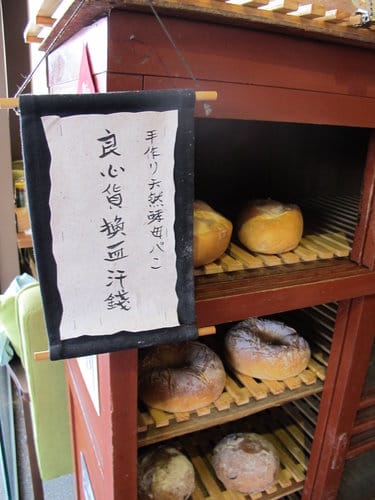 手作り天然酵母パン
良心貨換血汗錢